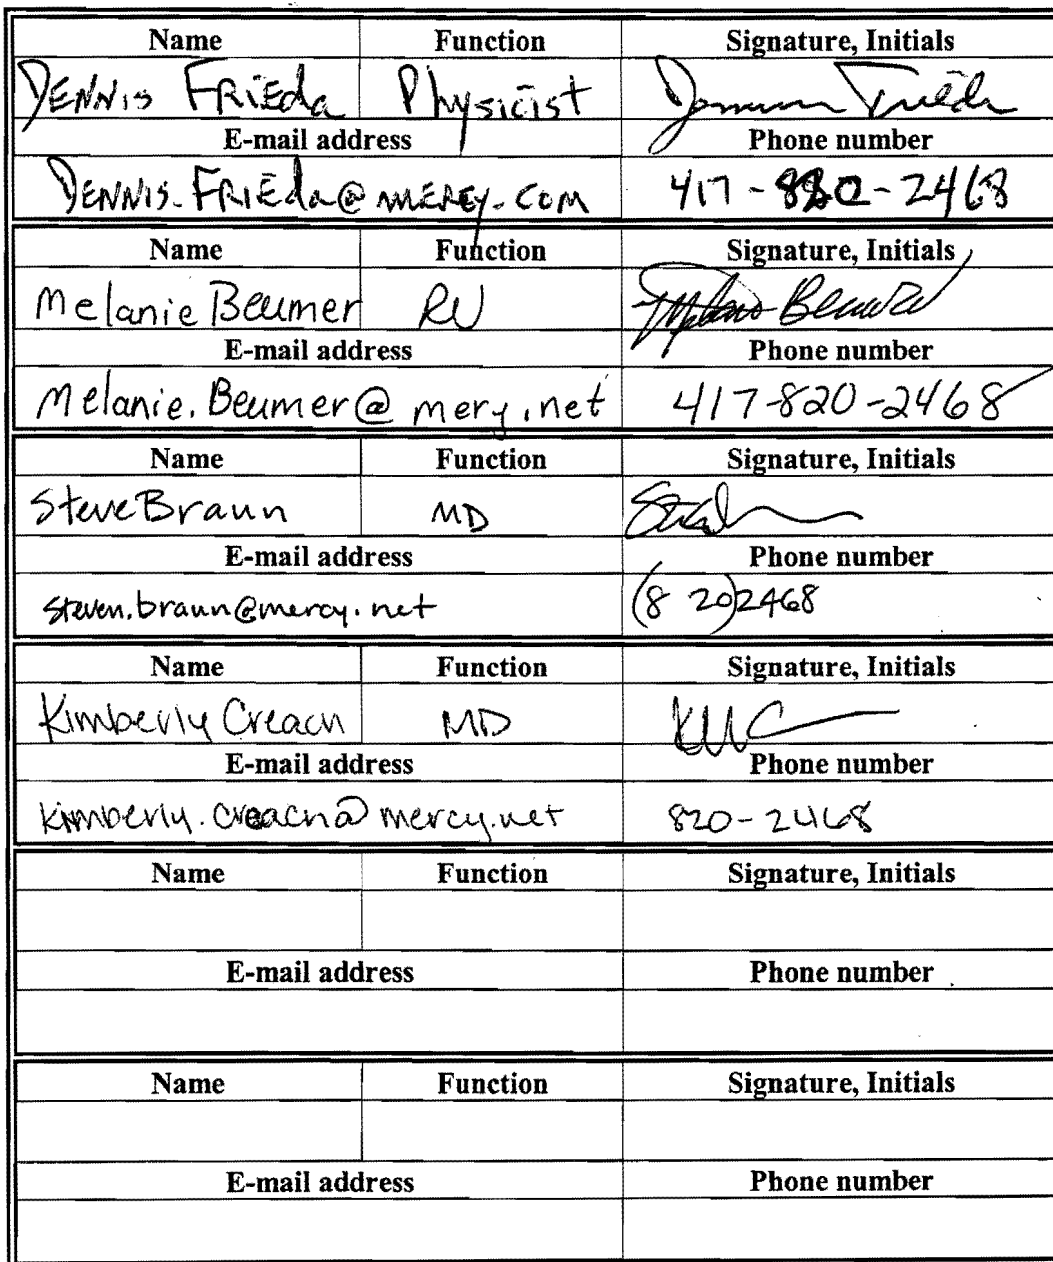 Name Function Signature, Initials
DENNIS FRIEda Physicist
E-mail address Phone number
DENNIS.FRIEda@MERCY.COM 417-820-2468
Name Function Signature, Initials
Melanie Beumer RN Melanie Beumer RN
E-mail address Phone number
Melanie.Beumer@mery.net 417-820-2468
Name Function Signature, Initials
Steve Braun MD
E-mail address Phone number
steven.braun@mercy.net (820)2468
Name Function Signature, Initials
Kimberly Creach MD KMC
E-mail address Phone number
kimberly.creach@mercy.net 820-2468
Name Function Signature, Initials
E-mail address Phone number
Name Function Signature, Initials
E-mail address Phone number